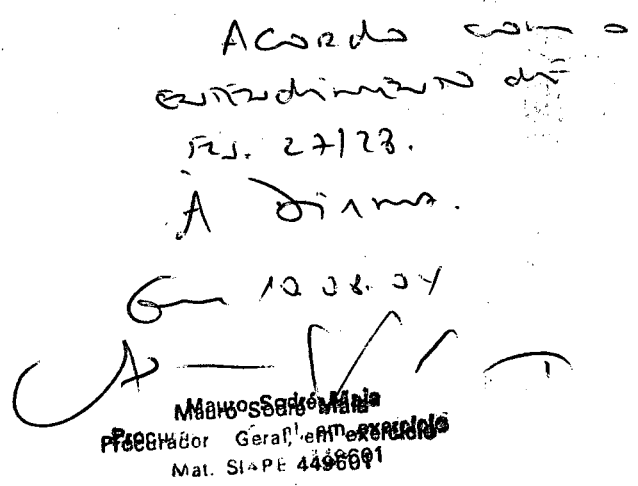 Acordo com o
entendimento de
Fls. 27/28.
À Dirma.
Em 10.08.04
Mauro Sodré Maia
Procurador Geral, em exercício
Mat. SIAPE 449601